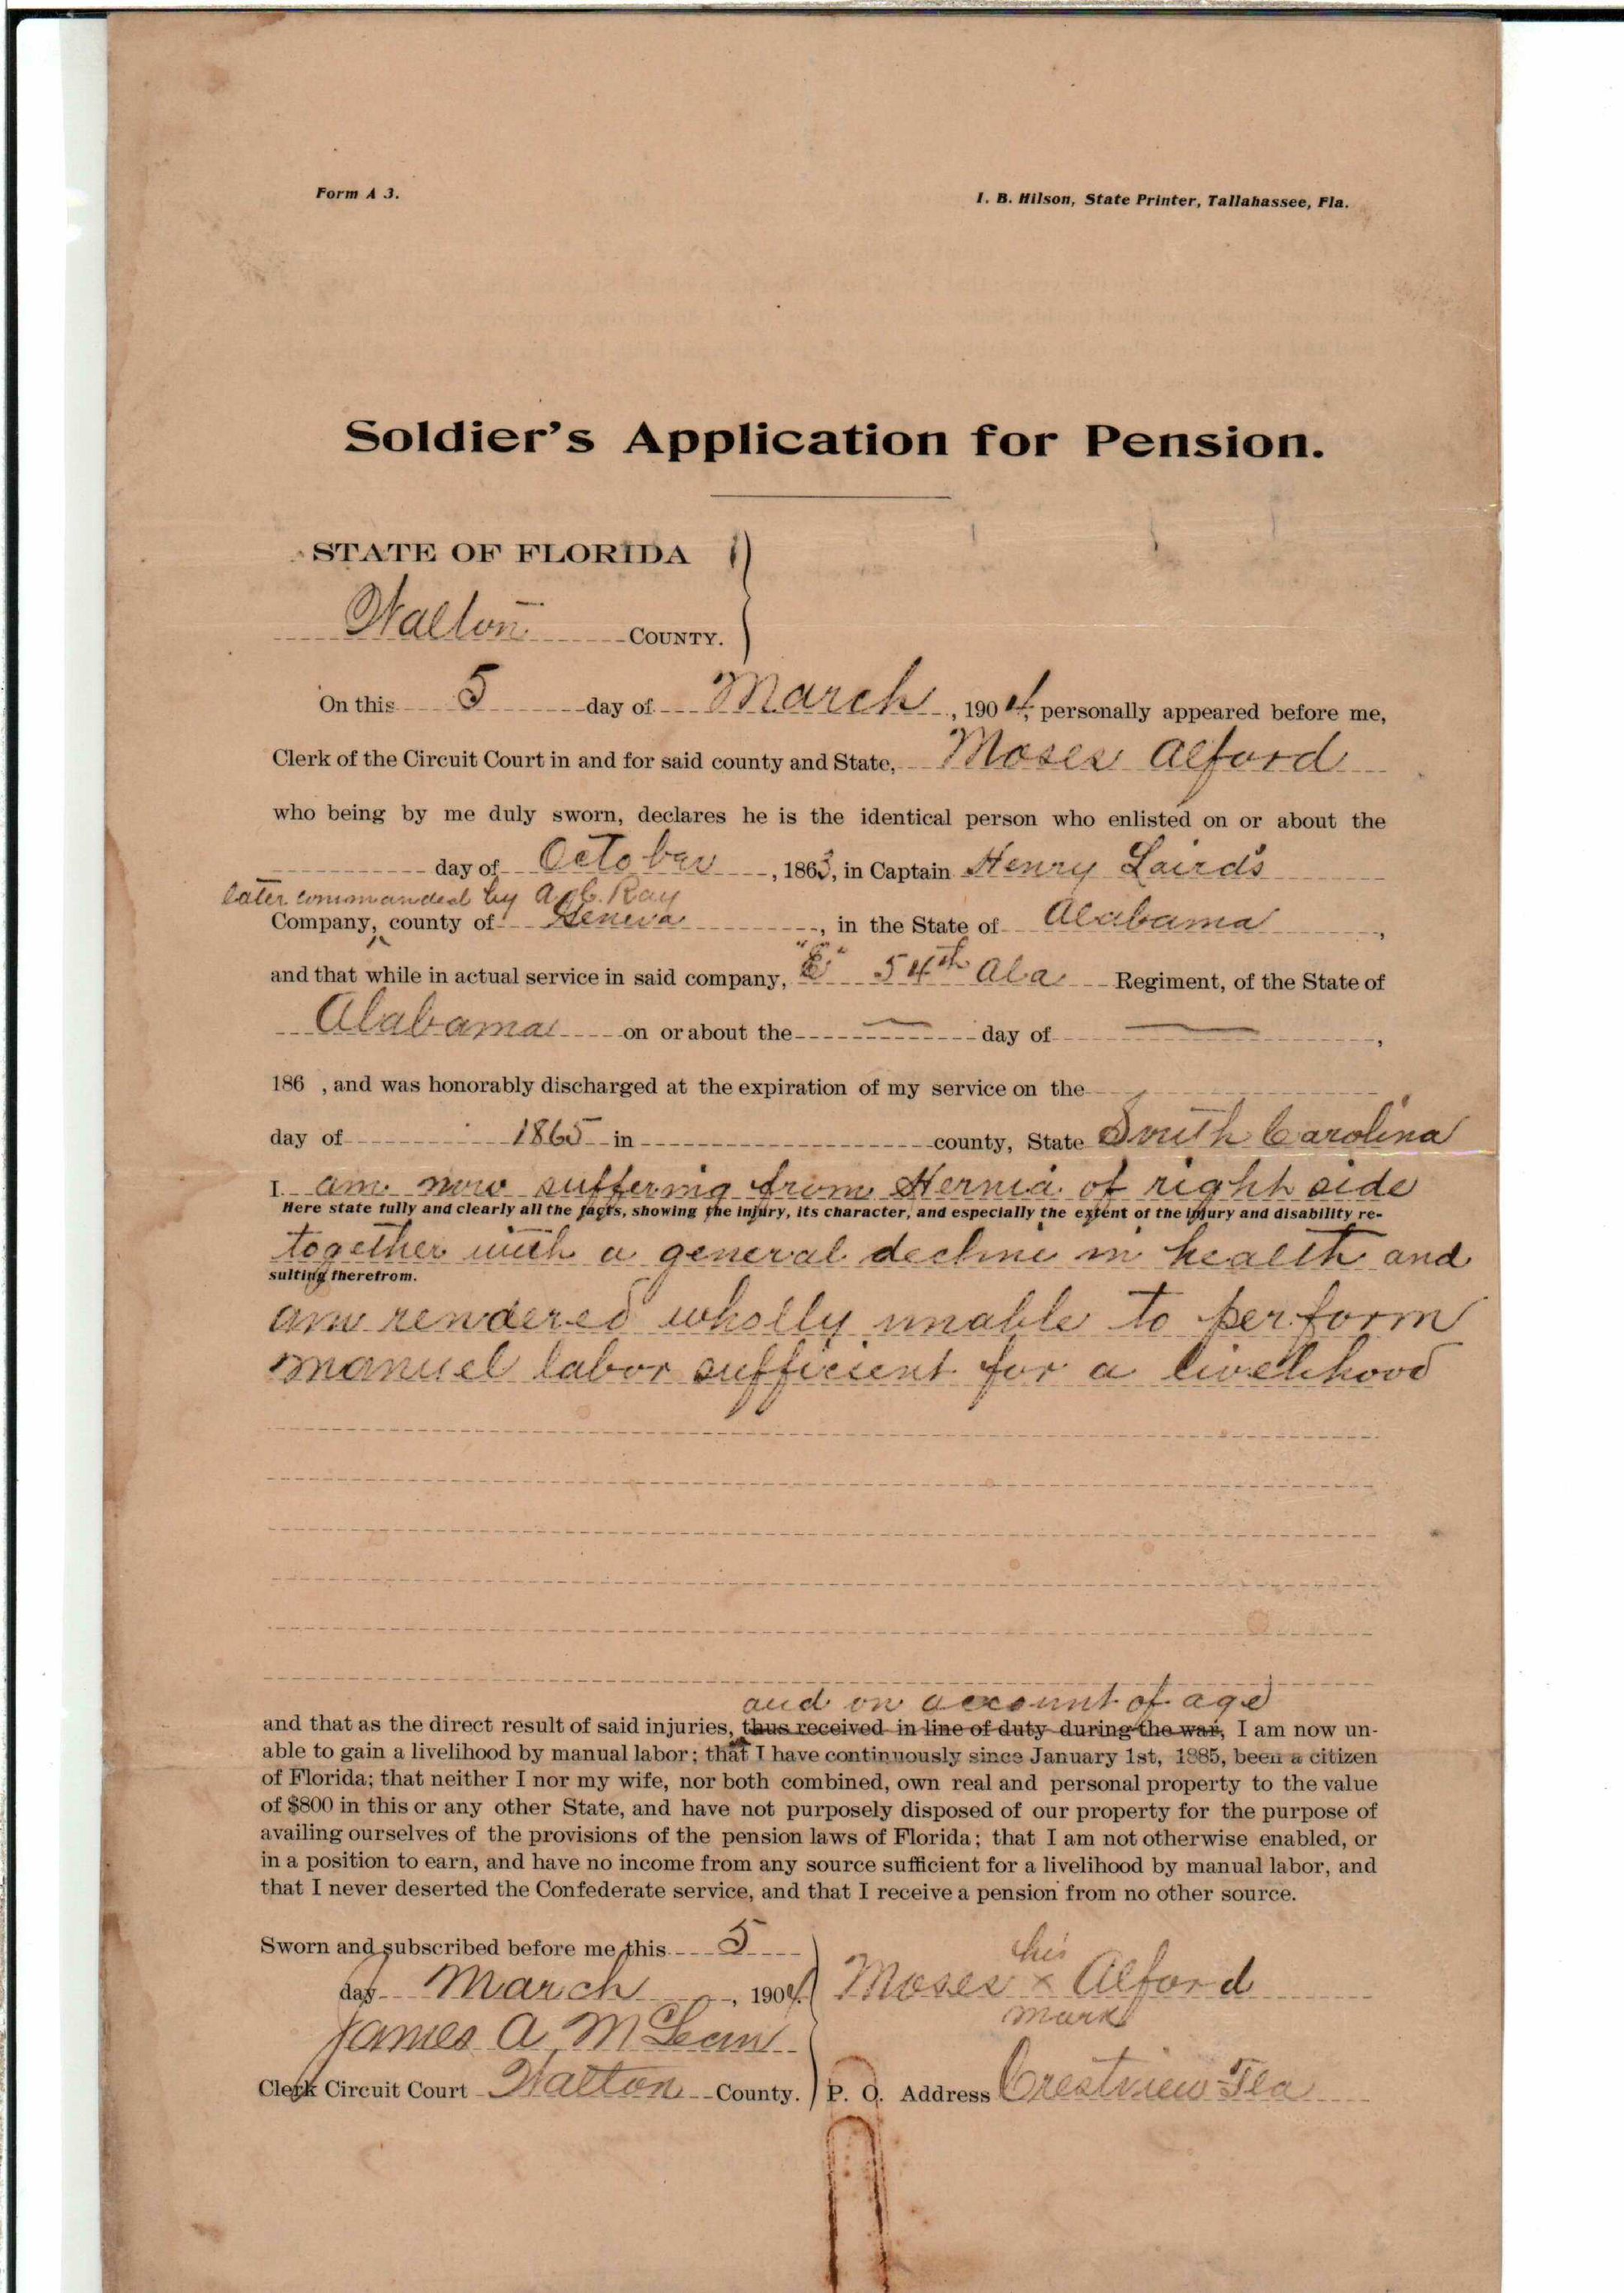 Form A 3.
I. B. Hilson, State Printer, Tallahassee, Fla.
Soldier's Application for Pension.
STATE OF FLORIDA
Walton COUNTY.
On this 5 day of March, 1904, personally appeared before me,
Clerk of the Circuit Court in and for said county and State, Moses Alford
who being by me duly sworn, declares he is the identical person who enlisted on or about the
day of October, 1863, in Captain Henry Laird's
later commanded by Ray
Company, county of Geneva, in the State of Alabama,
and that while in actual service in said company, "E" 54th Ala Regiment, of the State of
Alabama on or about the day of ,
186 , and was honorably discharged at the expiration of my service on the
day of 1865 in county, State South Carolina
I am now suffering from Hernia of right side
Here state fully and clearly all the facts, showing the injury, its character, and especially the extent of the injury and disability re-
together with a general decline in health and
sulting therefrom.
am rendered wholly unable to perform
manuel labor sufficient for a livelihood
and on account of age
and that as the direct result of said injuries, thus received in line of duty during the war, I am now un-
able to gain a livelihood by manual labor; that I have continuously since January 1st, 1885, been a citizen
of Florida; that neither I nor my wife, nor both combined, own real and personal property to the value
of $800 in this or any other State, and have not purposely disposed of our property for the purpose of
availing ourselves of the provisions of the pension laws of Florida; that I am not otherwise enabled, or
in a position to earn, and have no income from any source sufficient for a livelihood by manual labor, and
that I never deserted the Confederate service, and that I receive a pension from no other source.
Sworn and subscribed before me this 5
day March, 1904.
his
Moses x Alford
mark
James A. McLean
Clerk Circuit Court Walton County.
P. O. Address Crestview Fla